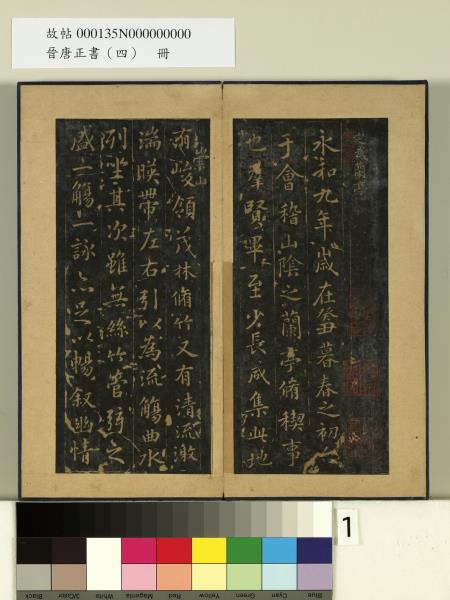 故帖 000135N000000000
晉唐正書（四） 冊
永和九年歲在癸丑暮春之初會
于會稽山陰之蘭亭脩禊事
也羣賢畢至少長咸集此地
有峻領茂林脩竹又有清流激
崇山
湍暎帶左右引以為流觴曲水
列坐其次雖無絲竹管弦之
盛一觴一詠亦足以暢敘幽情
1
Black
3/Color
White
Magenta
Red
Yellow
Green
Cyan
Blue